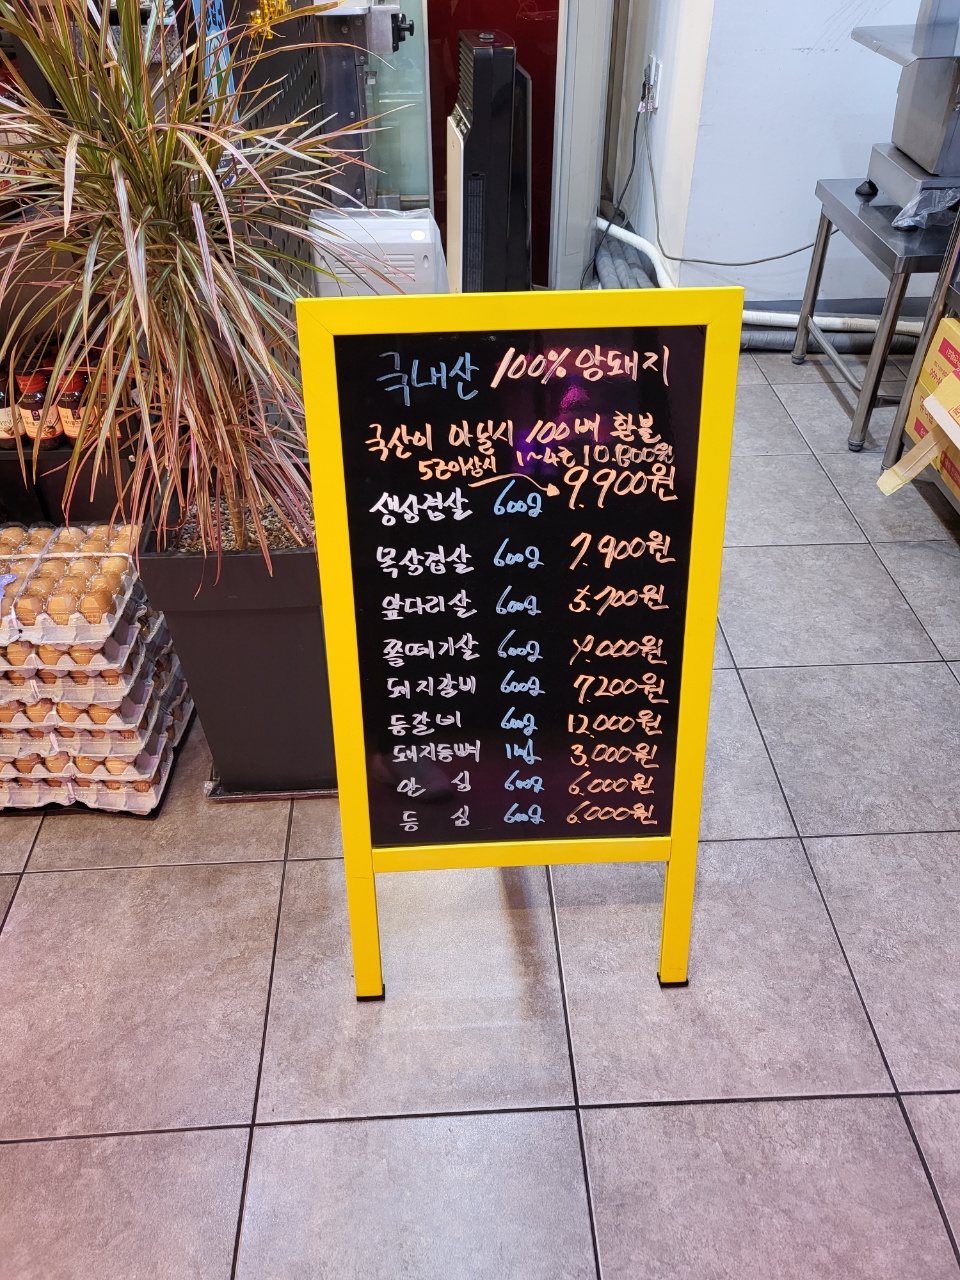 국내산 100% 암돼지
국산이 아닐시 100배 환불
5근이상시 1~4근 10.800원
생삼겹살 600g 9.900원
목삼겹살 600g 7.900원
앞다리살 600g 5.700원
쫄데기살 600g 4.000원
돼지갈비 600g 7.200원
등갈비 600g 12.000원
돼지등뼈 1벌 3.000원
안심 600g 6.000원
등심 600g 6.000원